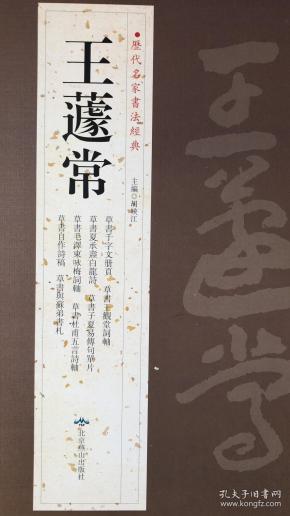 歷代名家書法經典
王蘧常
主編 胡紫江
草書千字文册頁 草書王觀堂詞軸
草書夏承燾白龍詩 草書子夏易傳句單片
草書毛澤東咏梅詞軸 草書杜甫五言詩軸
草書自作詩稿 草書與蘇弟書札
北京燕山出版社
王蘧常
孔夫子旧书网